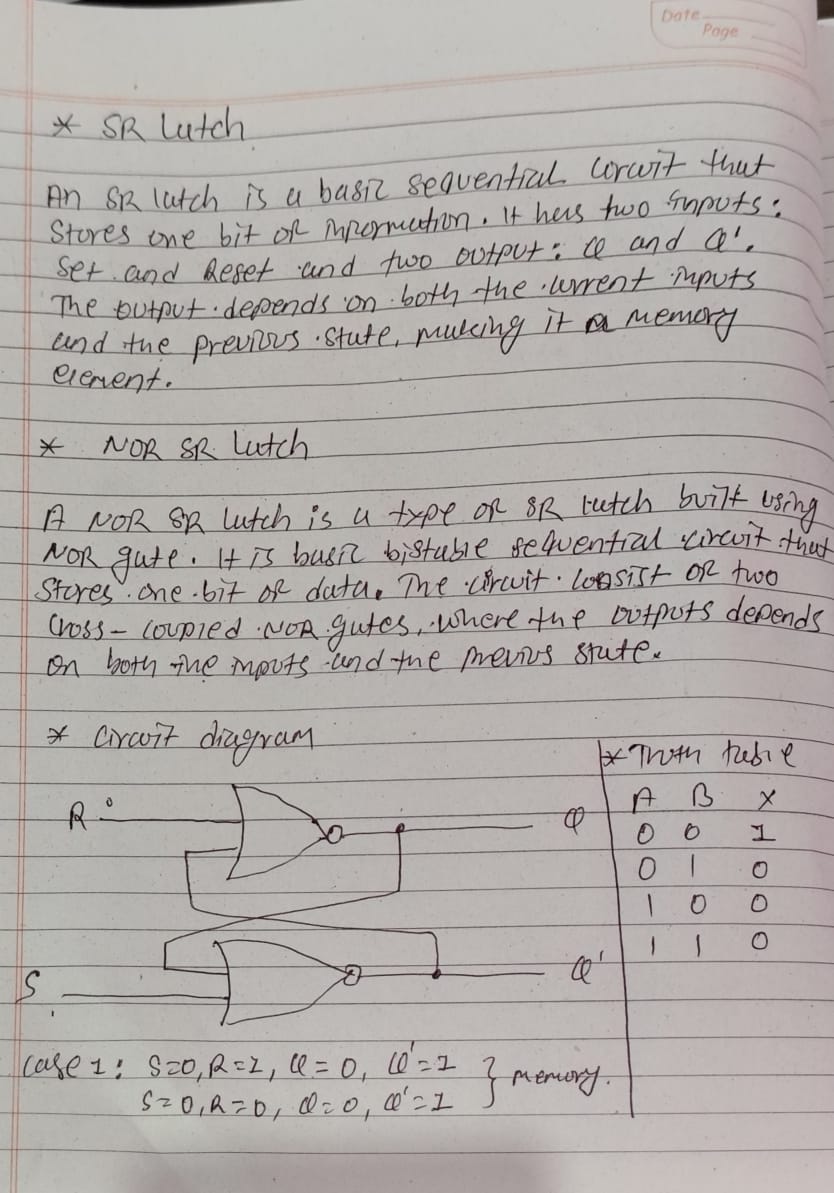 Date
Page
* SR Latch
An SR latch is a basic sequential circuit that
Stores one bit of information. It has two inputs:
Set and Reset and two output: Q and Q'.
The output depends on both the current inputs
and the previous state, making it a memory
element.
* NOR SR Latch
A NOR SR latch is a type of SR latch built using
NOR gate. It is basic bistable sequential circuit that
Stores one bit of data. The circuit consist of two
Cross-coupled NOR gates, where the outputs depends
on both the inputs and the previus state.
* Circuit diagram
* Truth table
A B X
0 0 1
0 1 0
1 0 0
1 1 0
R
Q
S
Q'
Case 1: S=0, R=1, Q=0, Q'=1
S=0, R=0, Q=0, Q'=1 } memory.